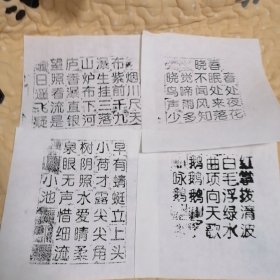 望庐山瀑布
日照香炉生紫烟
遥看瀑布挂前川
飞流直下三千尺
疑是银河落九天
春晓
春眠不觉晓
处处闻啼鸟
夜来风雨声
花落知多少
小池
泉眼无声惜细流
树阴照水爱晴柔
小荷才露尖尖角
早有蜻蜓立上头
咏鹅
鹅鹅鹅
曲项向天歌
白毛浮绿水
红掌拨清波